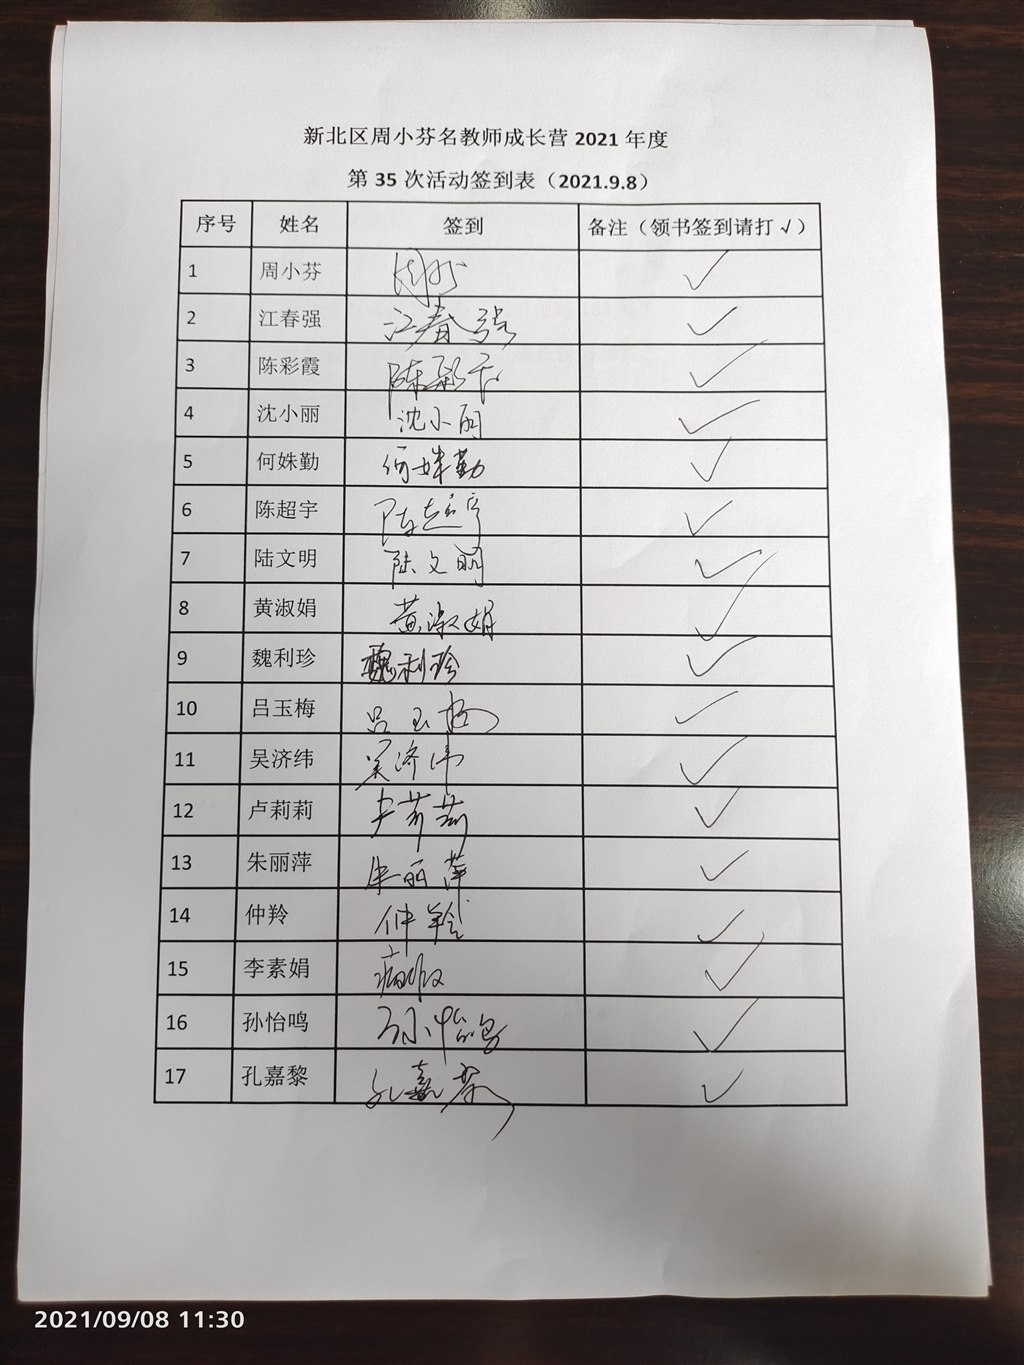 新北区周小芬名教师成长营 2021 年度
第 35 次活动签到表（2021.9.8）
序号 姓名 签到 备注（领书签到请打 √）
1 周小芬 ✓
2 江春强 江春强 ✓
3 陈彩霞 陈彩霞 ✓
4 沈小丽 沈小丽 ✓
5 何姝勤 何姝勤 ✓
6 陈超宇 陈超宇 ✓
7 陆文明 陆文明 ✓
8 黄淑娟 黄淑娟 ✓
9 魏利珍 魏利珍 ✓
10 吕玉梅 吕玉梅 ✓
11 吴济纬 吴济纬 ✓
12 卢莉莉 卢莉莉 ✓
13 朱丽萍 朱丽萍 ✓
14 仲羚 仲羚 ✓
15 李素娟 病假 ✓
16 孙怡鸣 孙怡鸣 ✓
17 孔嘉黎 孔嘉黎 ✓
2021/09/08 11:30